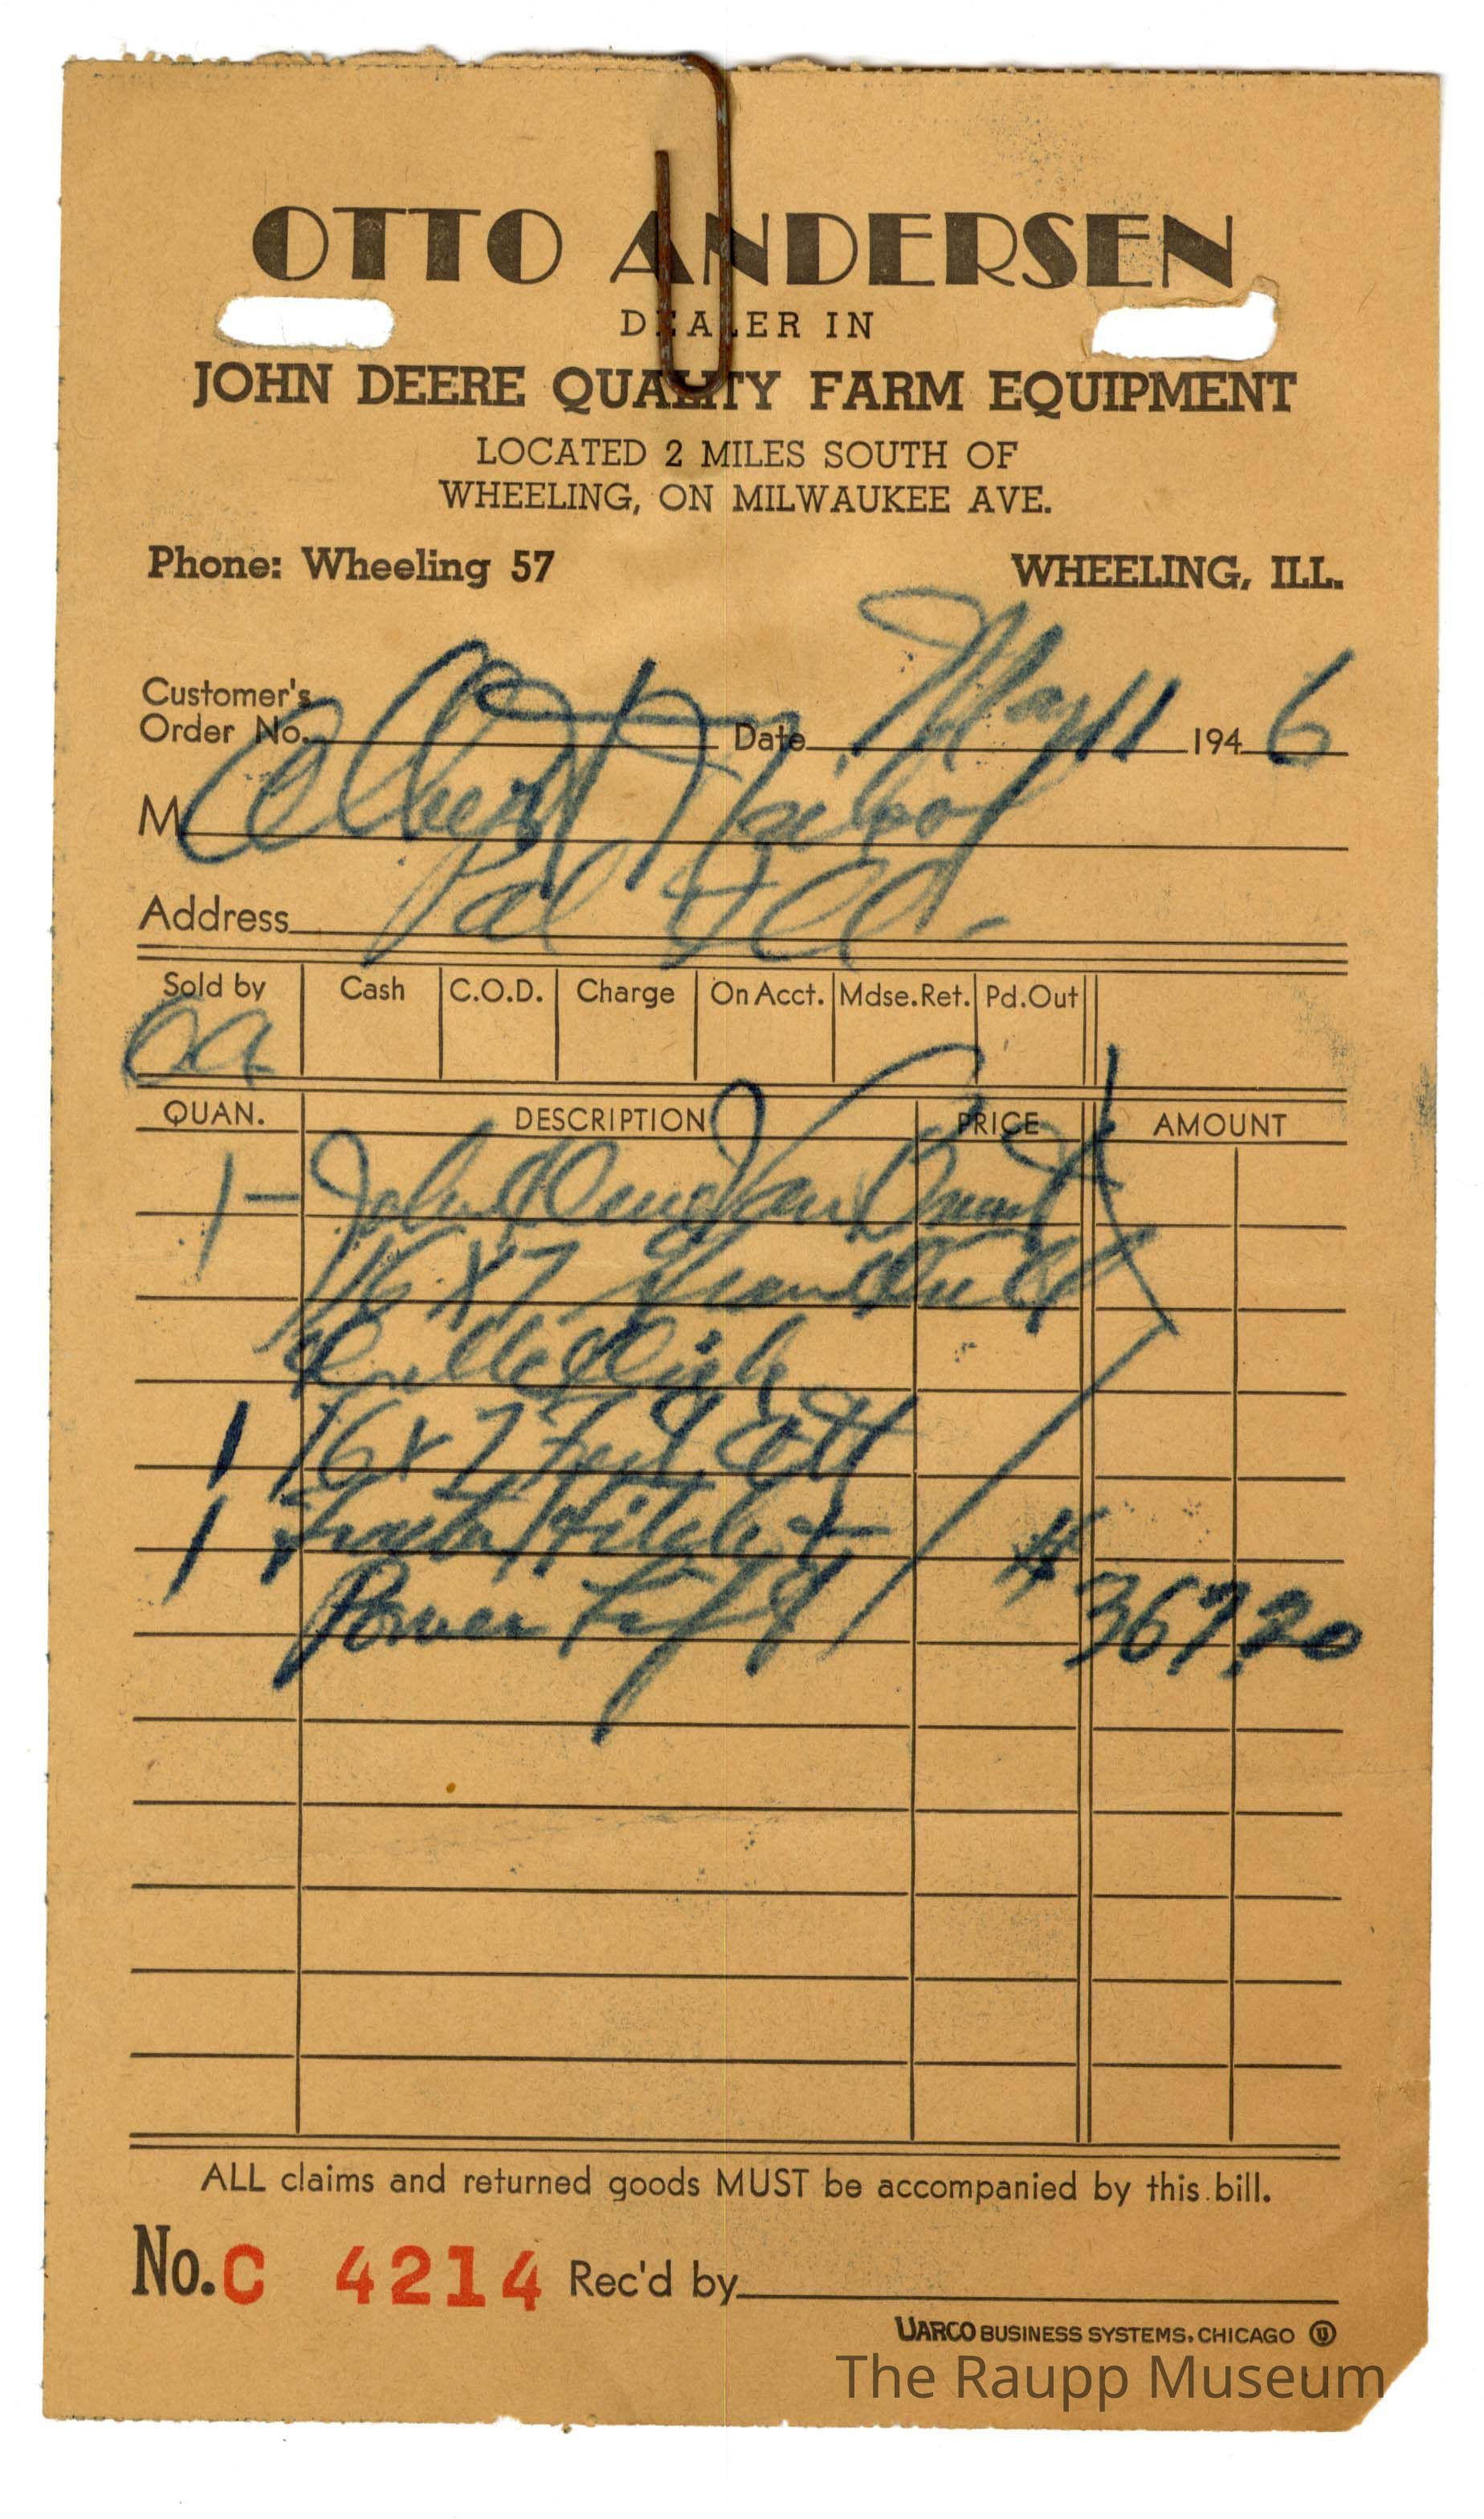 OTTO ANDERSEN
DEALER IN
JOHN DEERE QUALITY FARM EQUIPMENT
LOCATED 2 MILES SOUTH OF
WHEELING, ON MILWAUKEE AVE.
Phone: Wheeling 57 WHEELING, ILL.
Customer's
Order No. Date May 11 1946
M Albert
Address Pal Ill.
Sold by Cash C.O.D. Charge On Acct. Mdse.Ret. Pd.Out
OA
QUAN. DESCRIPTION PRICE AMOUNT
1 - John Deere Van Brunt
16 X 7
1 16 x 7 Fert Att
1 Tractor Hitch &
Power Lift $ 367.20
ALL claims and returned goods MUST be accompanied by this bill.
No. C 4214 Rec'd by
UARCO BUSINESS SYSTEMS, CHICAGO U
The Raupp Museum